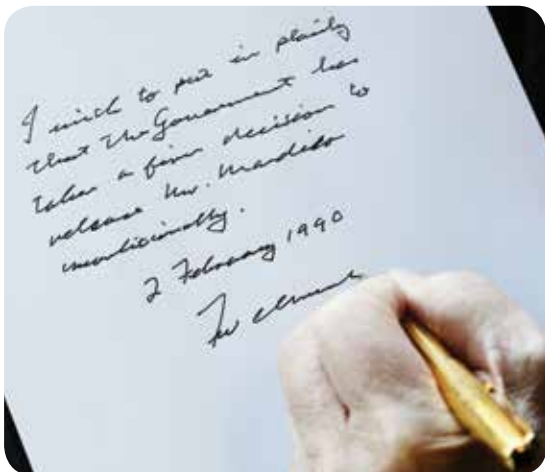 I wish to put in plainly
that the Government has
taken a firm decision to
release Mr. Mandela
unconditionally.
2 February 1990
FW de Klerk